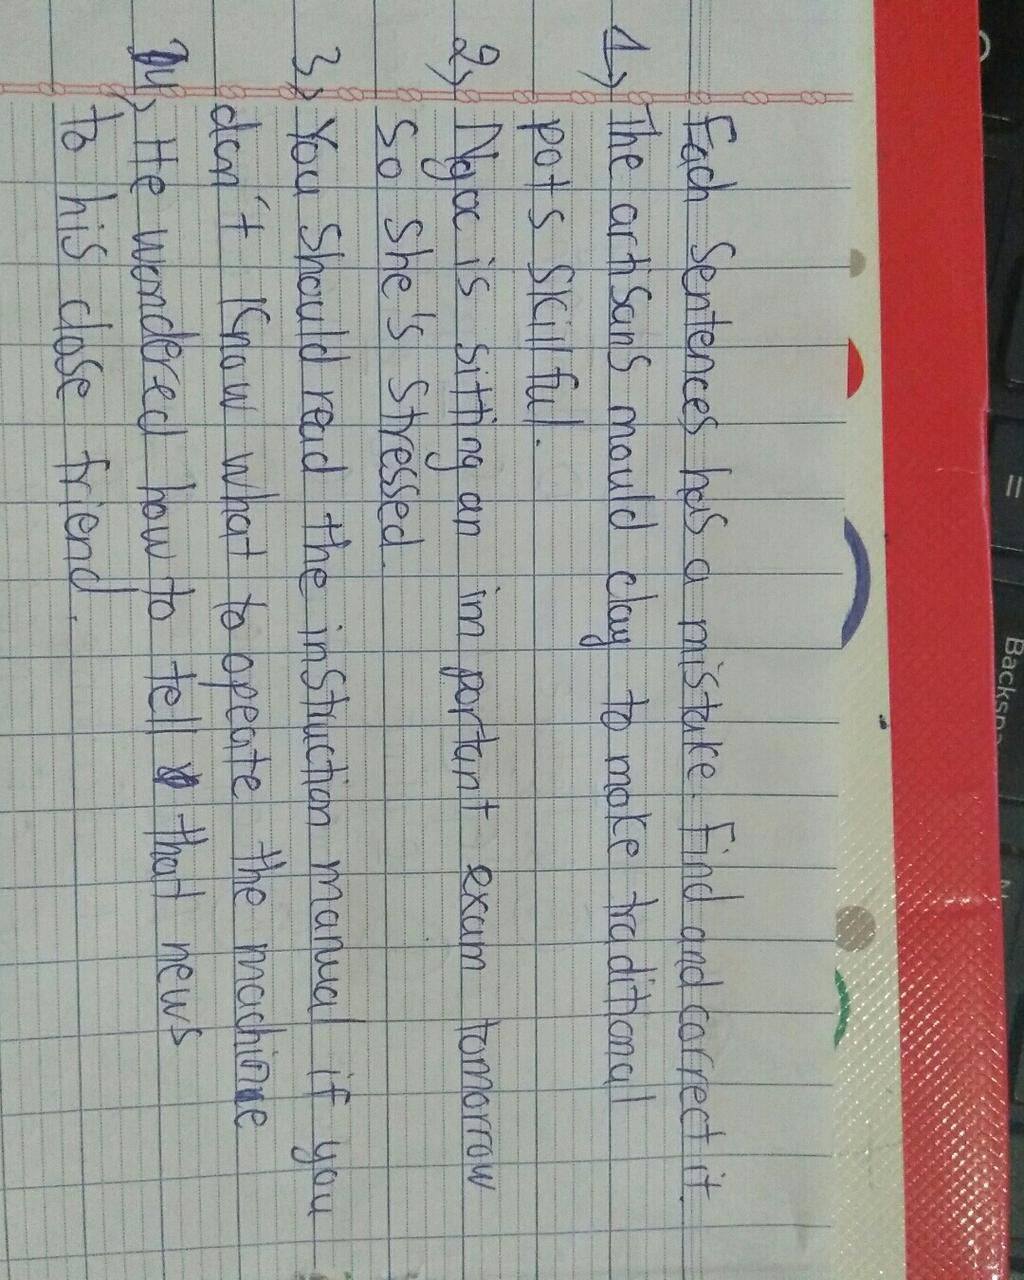 Each Sentences has a mistake. Find and correct it.
1→ The artisans mould clay to make traditional
pots Skillful.
2→ Ngoc is sitting an important exam tomorrow
So She's Stressed.
3→ You Should read the inStruction manual if you
don't Know what to opeate the machine
4→ He wondered how to tell that news
to his close friend.
Backsp